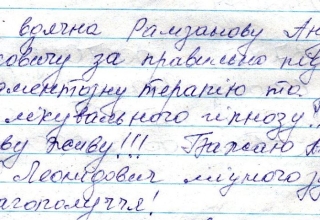 вдячна Рамзанову Ан
овичу за правильно під
оментозну терапію та
лікувального гіпнозу!!
ву живу!!! Бажаю А
Леонідович міцного з
лагополуччя!